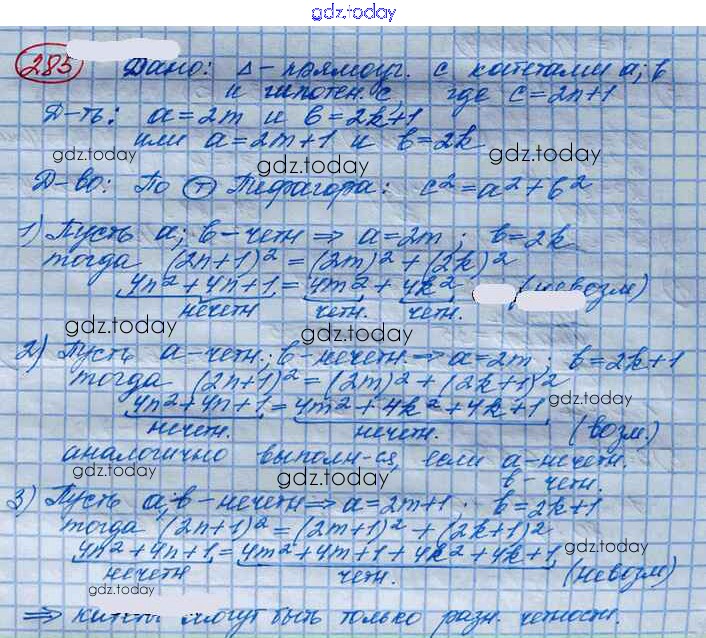 gdz.today
285 Дано: Δ-прямоуг. с катетами a; b
и гипотен. c, где c=2n+1
Д-ть: a=2m и b=2k+1
или a=2m+1 и b=2k
gdz.today gdz.today gdz.today
Д-во: По Т Пифагора: c²=a²+b²
1) Пусть a; b-четн ⇒ a=2m; b=2k
тогда (2n+1)²=(2m)²+(2k)²
4n²+4n+1=4m²+4k² (невозм)
нечетн четн. четн.
gdz.today gdz.today gdz.today
2) Пусть a-четн.; b-нечетн. ⇒ a=2m; b=2k+1
тогда (2n+1)²=(2m)²+(2k+1)²
gdz.today
4n²+4n+1=4m²+4k²+4k+1
нечетн. нечетн. (возм.)
аналогично выполн-ся, если a-нечетн.
gdz.today gdz.today b-четн.
3) Пусть a;b-нечетн ⇒ a=2m+1; b=2k+1
тогда (2n+1)²=(2m+1)²+(2k+1)²
4n²+4n+1=4m²+4m+1+4k²+4k+1
gdz.today
нечетн четн. (невозм)
gdz.today
⇒ катеты могут быть только разн. четности.